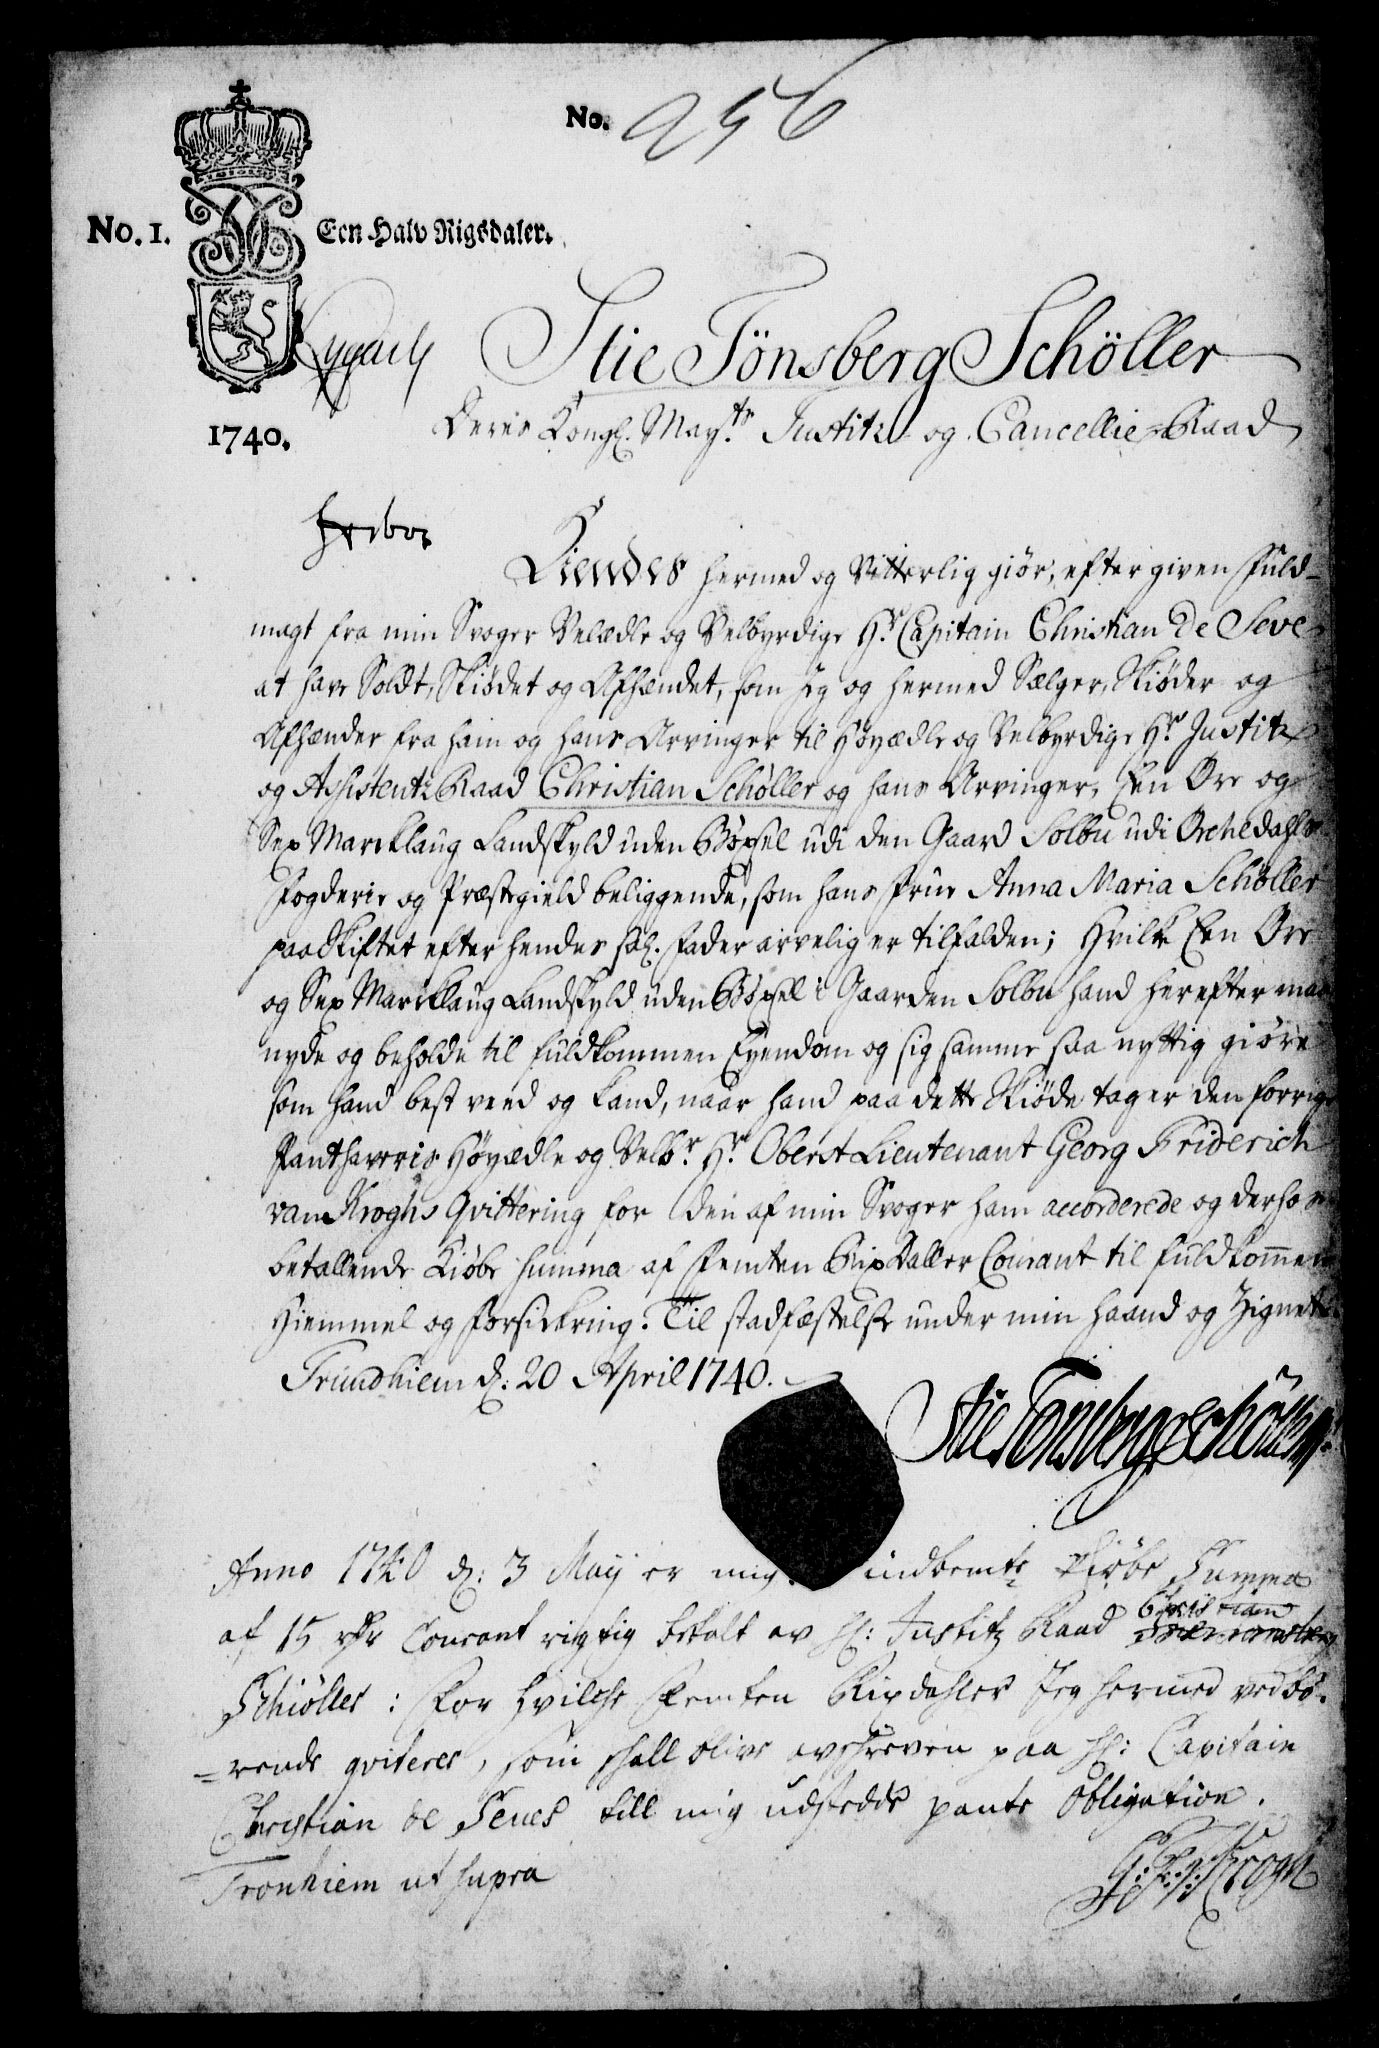 No. 256
No. 1. Een Halv Rigsdaler.
1740.
Stie Tönsberg Schöller
Deris Kongl. Mayts Justitz- og Cancellie-Raad
Kiendes hermed og Vitterlig giör, efter given Fuld-
magt fra min Svoger Velædle og Velbyrdige Hr. Capitain Christian De Seve
at have Soldt, Skiödet og Afhændet, som jeg og hermed Sælger, Skiöder og
Afhænder fra ham og hans Arvinger til Höyædle og Velbyrdige Hr. Justitz
og Assistentz Raad Christian Schøller og hans Arvinger, Een Øre og
Sex Marcklaug Landskyld uden Böxsel udi den Gaard Solbu udi Orchedahls
Fogderie og Præstegield beliggende, som hans Frue Anna Maria Schøller
paa Skiftet efter hendes sal. Fader arvelig er tilfalden; Hvilke Een Øre
og Sex Marcklaug Landskyld uden Böxsel i Gaarden Solbu hand herefter maa
nyde og beholde til fuldkommen Eyendom og sig samme saa nyttig giöre
som hand best veed og kand, naar hand paa dette Skiöde tager den forrige
Pantharris Höyædle og Velbr. Hr. Oberst Lieutenant Georg Friderich
van Kroghs Qvittering for den af min Svoger ham accorderede og derfor
betallende Kiöbe Summa af Femten Rixdaller Courant til fuldkommen
Hiemmel og Forsickring. Til stadfæstelse under min Haand og Zignete
Trundhiem d: 20 April 1740.
Stie Tonsberg Schöller
Anno 1740 d: 3 May er mig indbemte Kiöbe Summa
af 15 rdr Courant rigtig betalt av Hr: Justitz Raad Christian
Schiöller: for hvilche Femten Rixdahler Jeg hermed vedbö-
=rende qviterer, som skall blive avskreven paa Hr: Capitain
Christian de Seues till mig udstedde pante Obligation.
Tronhiem ut supra
G: F: v: Krogh